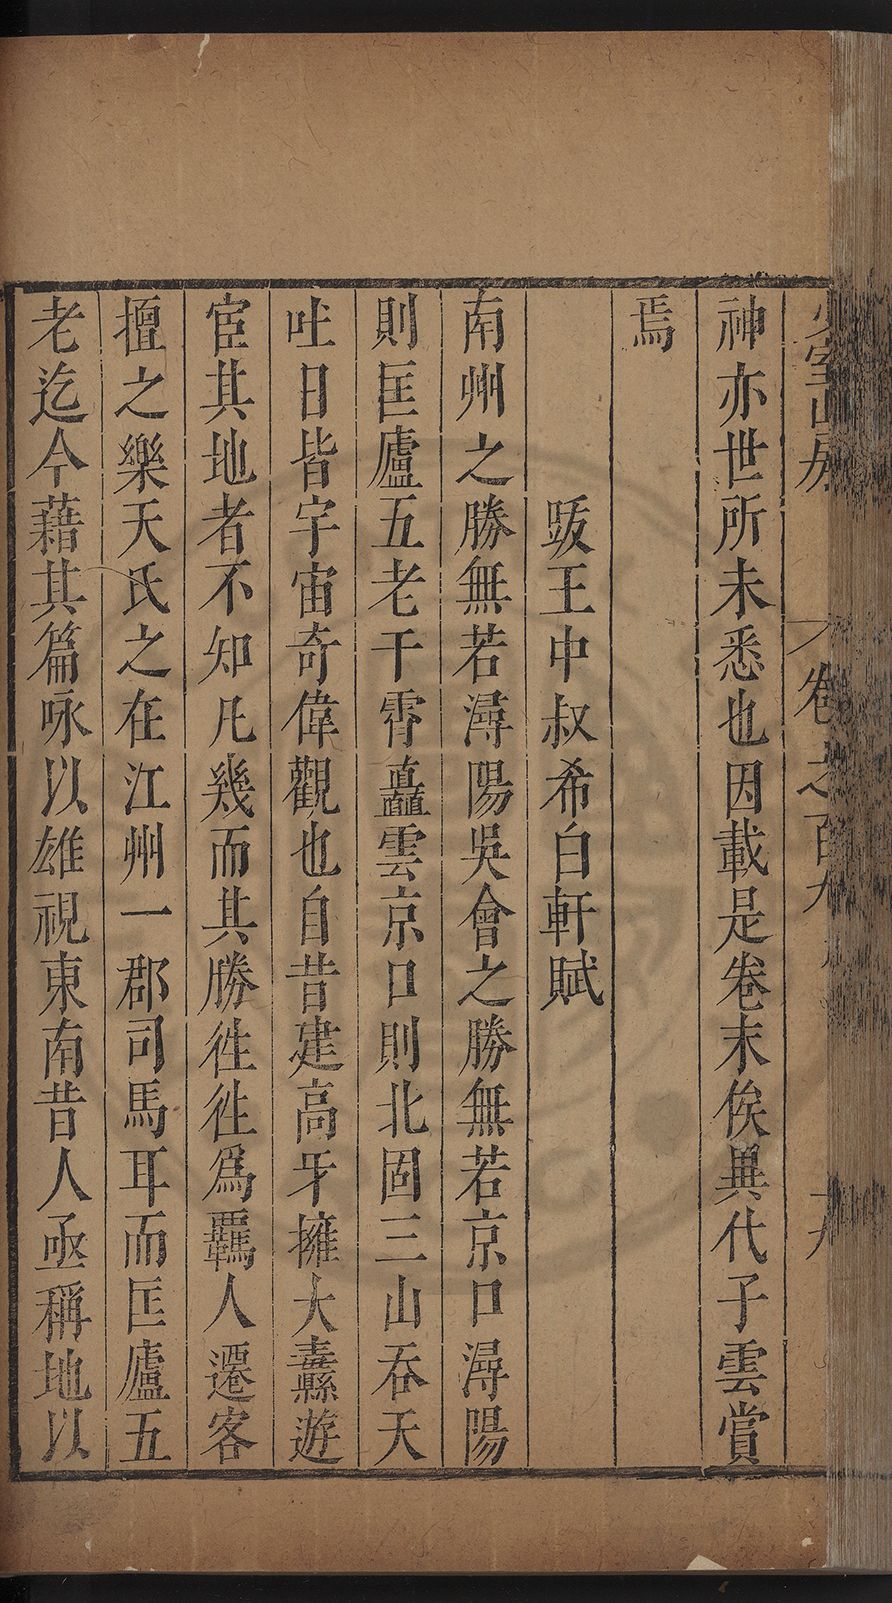 少室山房 卷之百九 十九
神亦世所未悉也因載是卷末俟異代子雲賞
焉
跋王中叔希白軒賦
南州之勝無若潯陽吳會之勝無若京口潯陽
則匡廬五老干霄矗雲京口則北固三山吞天
吐日皆宇宙奇偉觀也自昔建高牙擁大纛遊
宦其地者不知凡幾而其勝徃徃爲羈人遷客
擅之樂天氏之在江州一郡司馬耳而匡廬五
老迄今藉其篇咏以雄視東南昔人亟稱地以